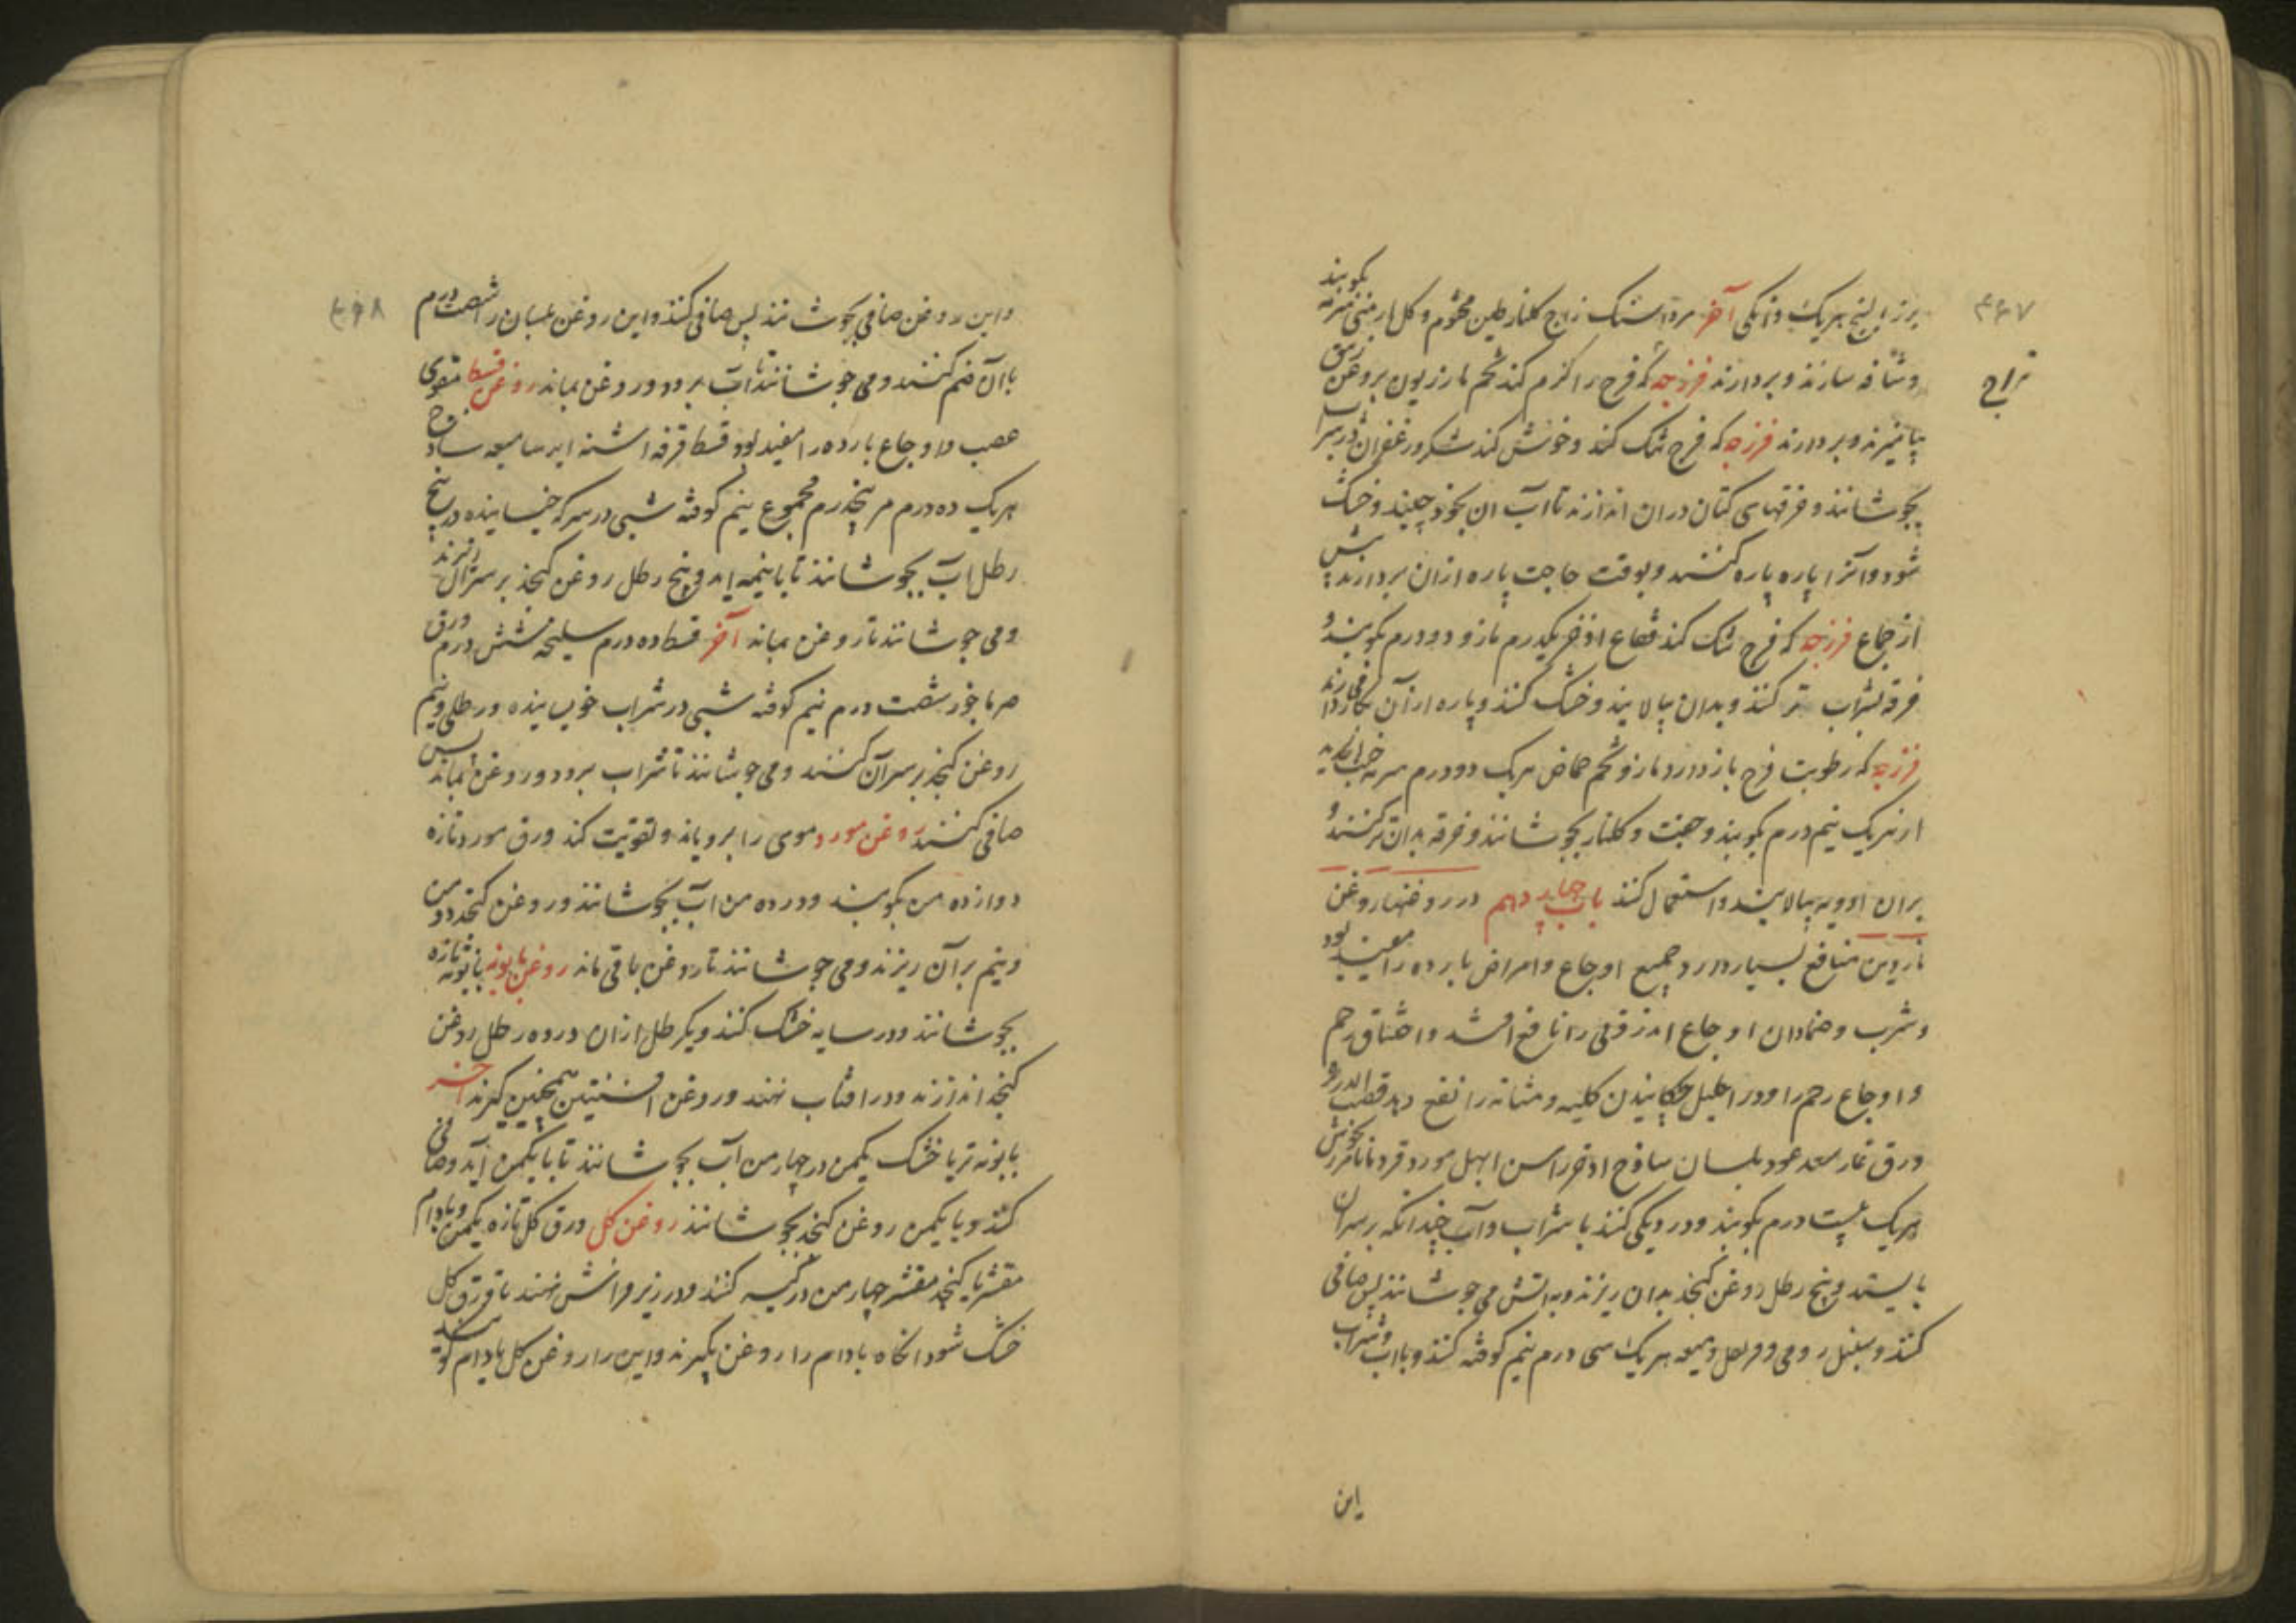 ۴۶۷
بزر البنج هریک دانکی آخر مرداسنک زاج کلنار طین مختوم و کل ارمنی بکوبند
و شافه سازند و بردارند فرزجه که فرج را کرم کند تخم مازریون بروغن زنبق
بیامیزند و بردارند فرزجه که فرج تنک کند و خوش کند شک و زعفران در شراب
بجوشانند و خرقهای کتان دران اندازند تا آب ان بخود چیند و خشک
شود و آنرا پاره پاره کنند و بوقت حاجت پاره ازان بردارند پیش
از جماع فرزجه که فرج تنک کند فقاع اذخر یکدرم مازو دو درم بکوبند و
خرقه بشراب تر کنند و بدان بیالایند و خشک کنند و پاره ازآن بکار دارند
فرزجه که رطوبت فرج باز دارد مازو تخم حماض هریک دو درم سرمه
از هریک نیم درم بکوبند و جفت و کلنار بجوشانند و خرقه بدان تر کنند و
بران ادویه بیالایند و استعمال کنند باب چهاردهم در روغنها روغن
ناردین منافع بسیار دارد جمیع اوجاع و امراض بارده را مفید بود
و شرب و ضمادان اوجاع را نافع باشد و اختناق رحم
و اوجاع رحم را و در احلیل چکانیدن کلیه و مثانه را نفع دهد قصب الذریره
ورق غار سعد عود بلسان ساذج اذخر راسن ابهل مورد قردمانا مرزنجوش
هریک بیست درم بکوبند و در دیکی کنند با شراب و آب چندانکه بر سر ان
بایستد و پنج رطل روغن کنجد بدان ریزند و به آتش می جوشانند پس صافی
کنند و سنبل رومی و قرنفل و میعه هریک سی درم نیم کوفته کنند و با آب و شراب
این
۴۶۸
و این روغن صافی بجوشانند پس صافی کنند و این روغن بلسان را شصت درم
با آن ضم کنند و می جوشانند تا آب برود و روغن بماند روغن قسط مقوی
عصب و اوجاع بارده را مفید بود قسط قرفه اشنه ایرسا میعه ساذج
هریک ده درم مر پنجدرم مجموع نیم کوفته شبی در سرکه خیسانیده در پنج
رطل آب بجوشانند تا با نیمه اید و پنج رطل روغن کنجد بر سر آن ریزند
و می جوشانند تا روغن بماند آخر قسط ده درم سلیخه شش درم ورق
مرماخور شصت درم نیم کوفته شبی در شراب خوسانیده و رطلی و نیم
روغن کنجد بر سر آن کنند و می جوشانند تا شراب برود و روغن بماند پس
صافی کنند روغن مورد موی را برویاند و تقویت کند ورق مورد تازه
دوازده من بکوبند و در ده من اب بجوشانند و روغن کنجد دو من
و نیم بر آن ریزند و می جوشانند تا روغن باقی ماند روغن بابونه بابونه تازه
بجوشانند و در سایه خشک کنند و یکرطل ازان در ده رطل روغن
کنجد اندازند و در افتاب نهند و روغن افسنتین همچنین کیرند آخر
بابونه تر یا خشک یکمن در چهار من آب بجوشانند تا با یکمن آید و صافی
کنند و با یکمن روغن کنجد بجوشانند روغن کل ورق کل تازه یکمن و بادام
مقشر یا کنجد مقشر چهار من در کیسه کنند و در زیر فراش نهند تا ورق کل
خشک شود انکاه بادام را روغن بکیرند و این را روغن کل بادام کویند